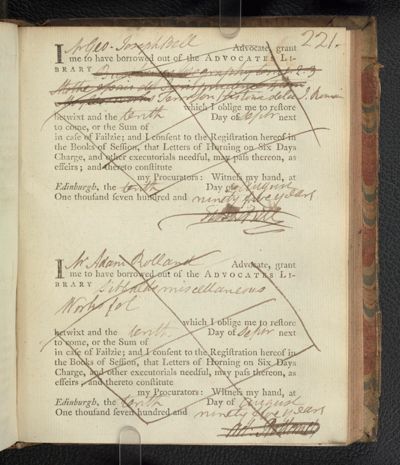 221.
I Mr Geo. Joseph Bell Advocate, grant
me to have borrowed out of the ADVOCATES LI-
BRARY
which I oblige me to restore
betwixt and the tenth Day of Septr next
to come, or the Sum of
in case of Failzie; and I consent to the Registration hereof in
the Books of Session, that Letters of Horning on Six Days
Charge, and other executorials needful, may pass thereon, as
effeirs; and thereto constitute
my Procurators: Witness my hand, at
Edinburgh, the tenth Day of August
One thousand seven hundred and ninety five years
I Mr Adam Rolland Advocate, grant
me to have borrowed out of the ADVOCATES LI-
BRARY miscellaneous
Works fol
which I oblige me to restore
betwixt and the tenth Day of Septr next
to come, or the Sum of
in case of Failzie; and I consent to the Registration hereof in
the Books of Session, that Letters of Horning on Six Days
Charge, and other executorials needful, may pass thereon, as
effeirs, and thereto constitute
my Procurators: Witness my hand, at
Edinburgh, the tenth Day of August
One thousand seven hundred and ninety five years